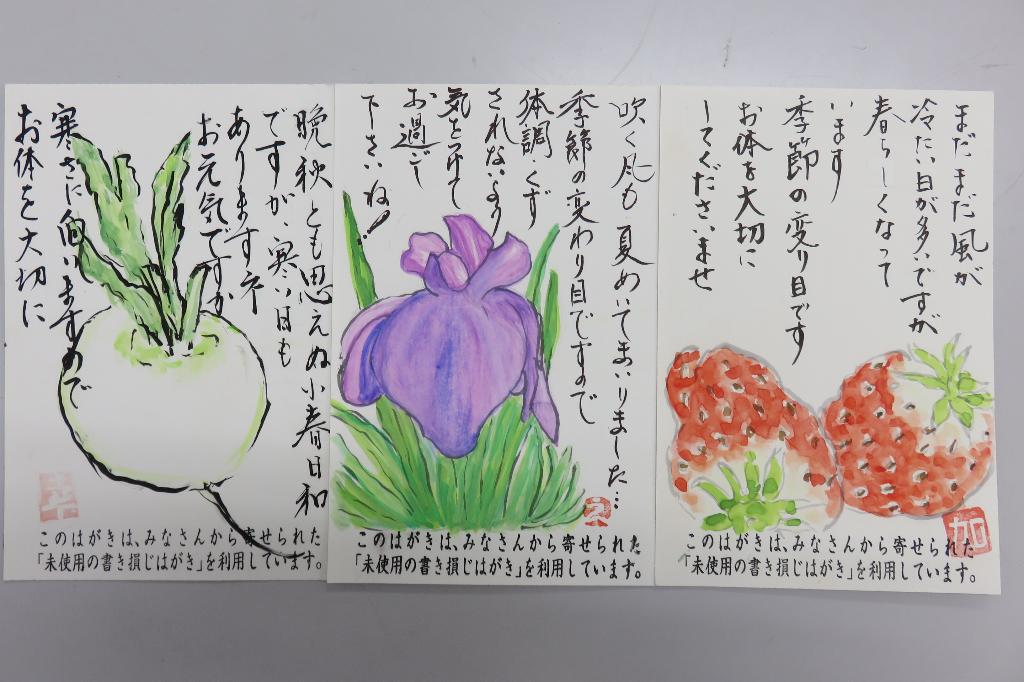 晩秋とも思えぬ小春日和
ですが、寒い日も
ありますネ
お元気ですか
寒さに向いますので
お体を大切に
このはがきは、みなさんから寄せられた
「未使用の書き損じはがき」を利用しています。
吹く風も夏めいてまいりました…
季節の変わり目ですので
体調くず
されないよう
気をつけて
お過ごし
下さいね!
このはがきは、みなさんから寄せられた
「未使用の書き損じはがき」を利用しています。
まだまだ風が
冷たい日が多いですが
春らしくなって
います
季節の変り目です
お体を大切に
してくださいませ
加
このはがきは、みなさんから寄せられた
「未使用の書き損じはがき」を利用しています。